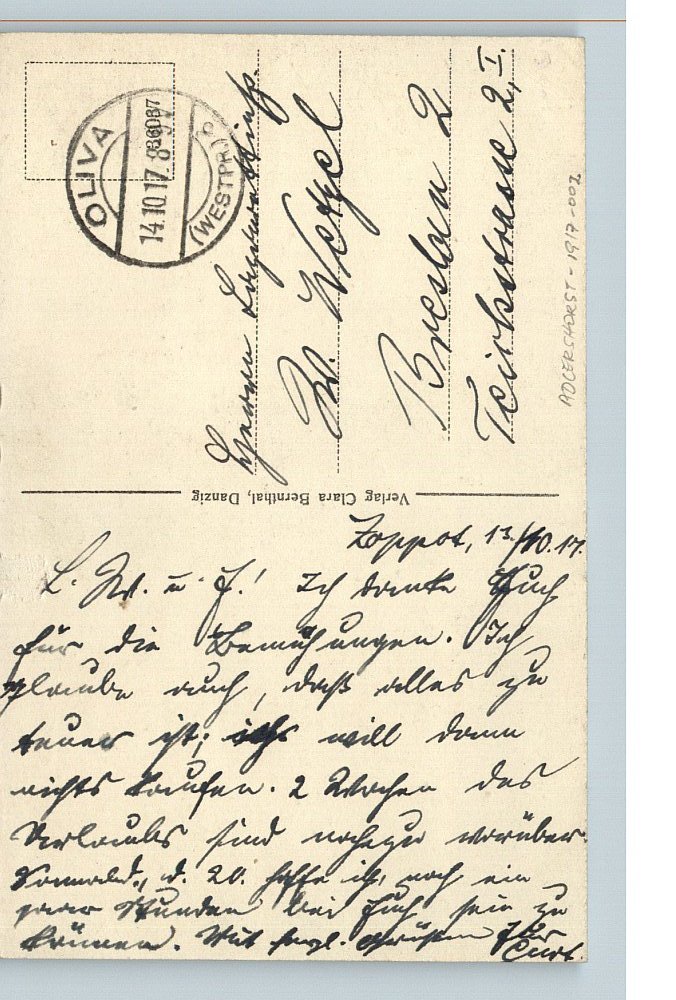 OLIVA
14.10.17. 8-9 V
(WESTPR.)
336087
Herrn
W. Wetzel
Breslau 2
Teichstrasse 2, I.
ADLERSHORST - 1917 - 002
Verlag Clara Bernthal, Danzig
Zoppot, 13./10.17.
L. W. u. F.! Ich danke Euch
für die Bemühungen. Ich
glaube auch, daß alles zu
teuer ist; ich will dann
nichts kaufen. 2 Wochen des
Urlaubs sind nahezu vorüber.
Sonnabd., d. 20. hoffe ich, noch ein
paar Stunden bei Euch sein zu
können. Mit herzl. Grüßen Ihr
Curt.